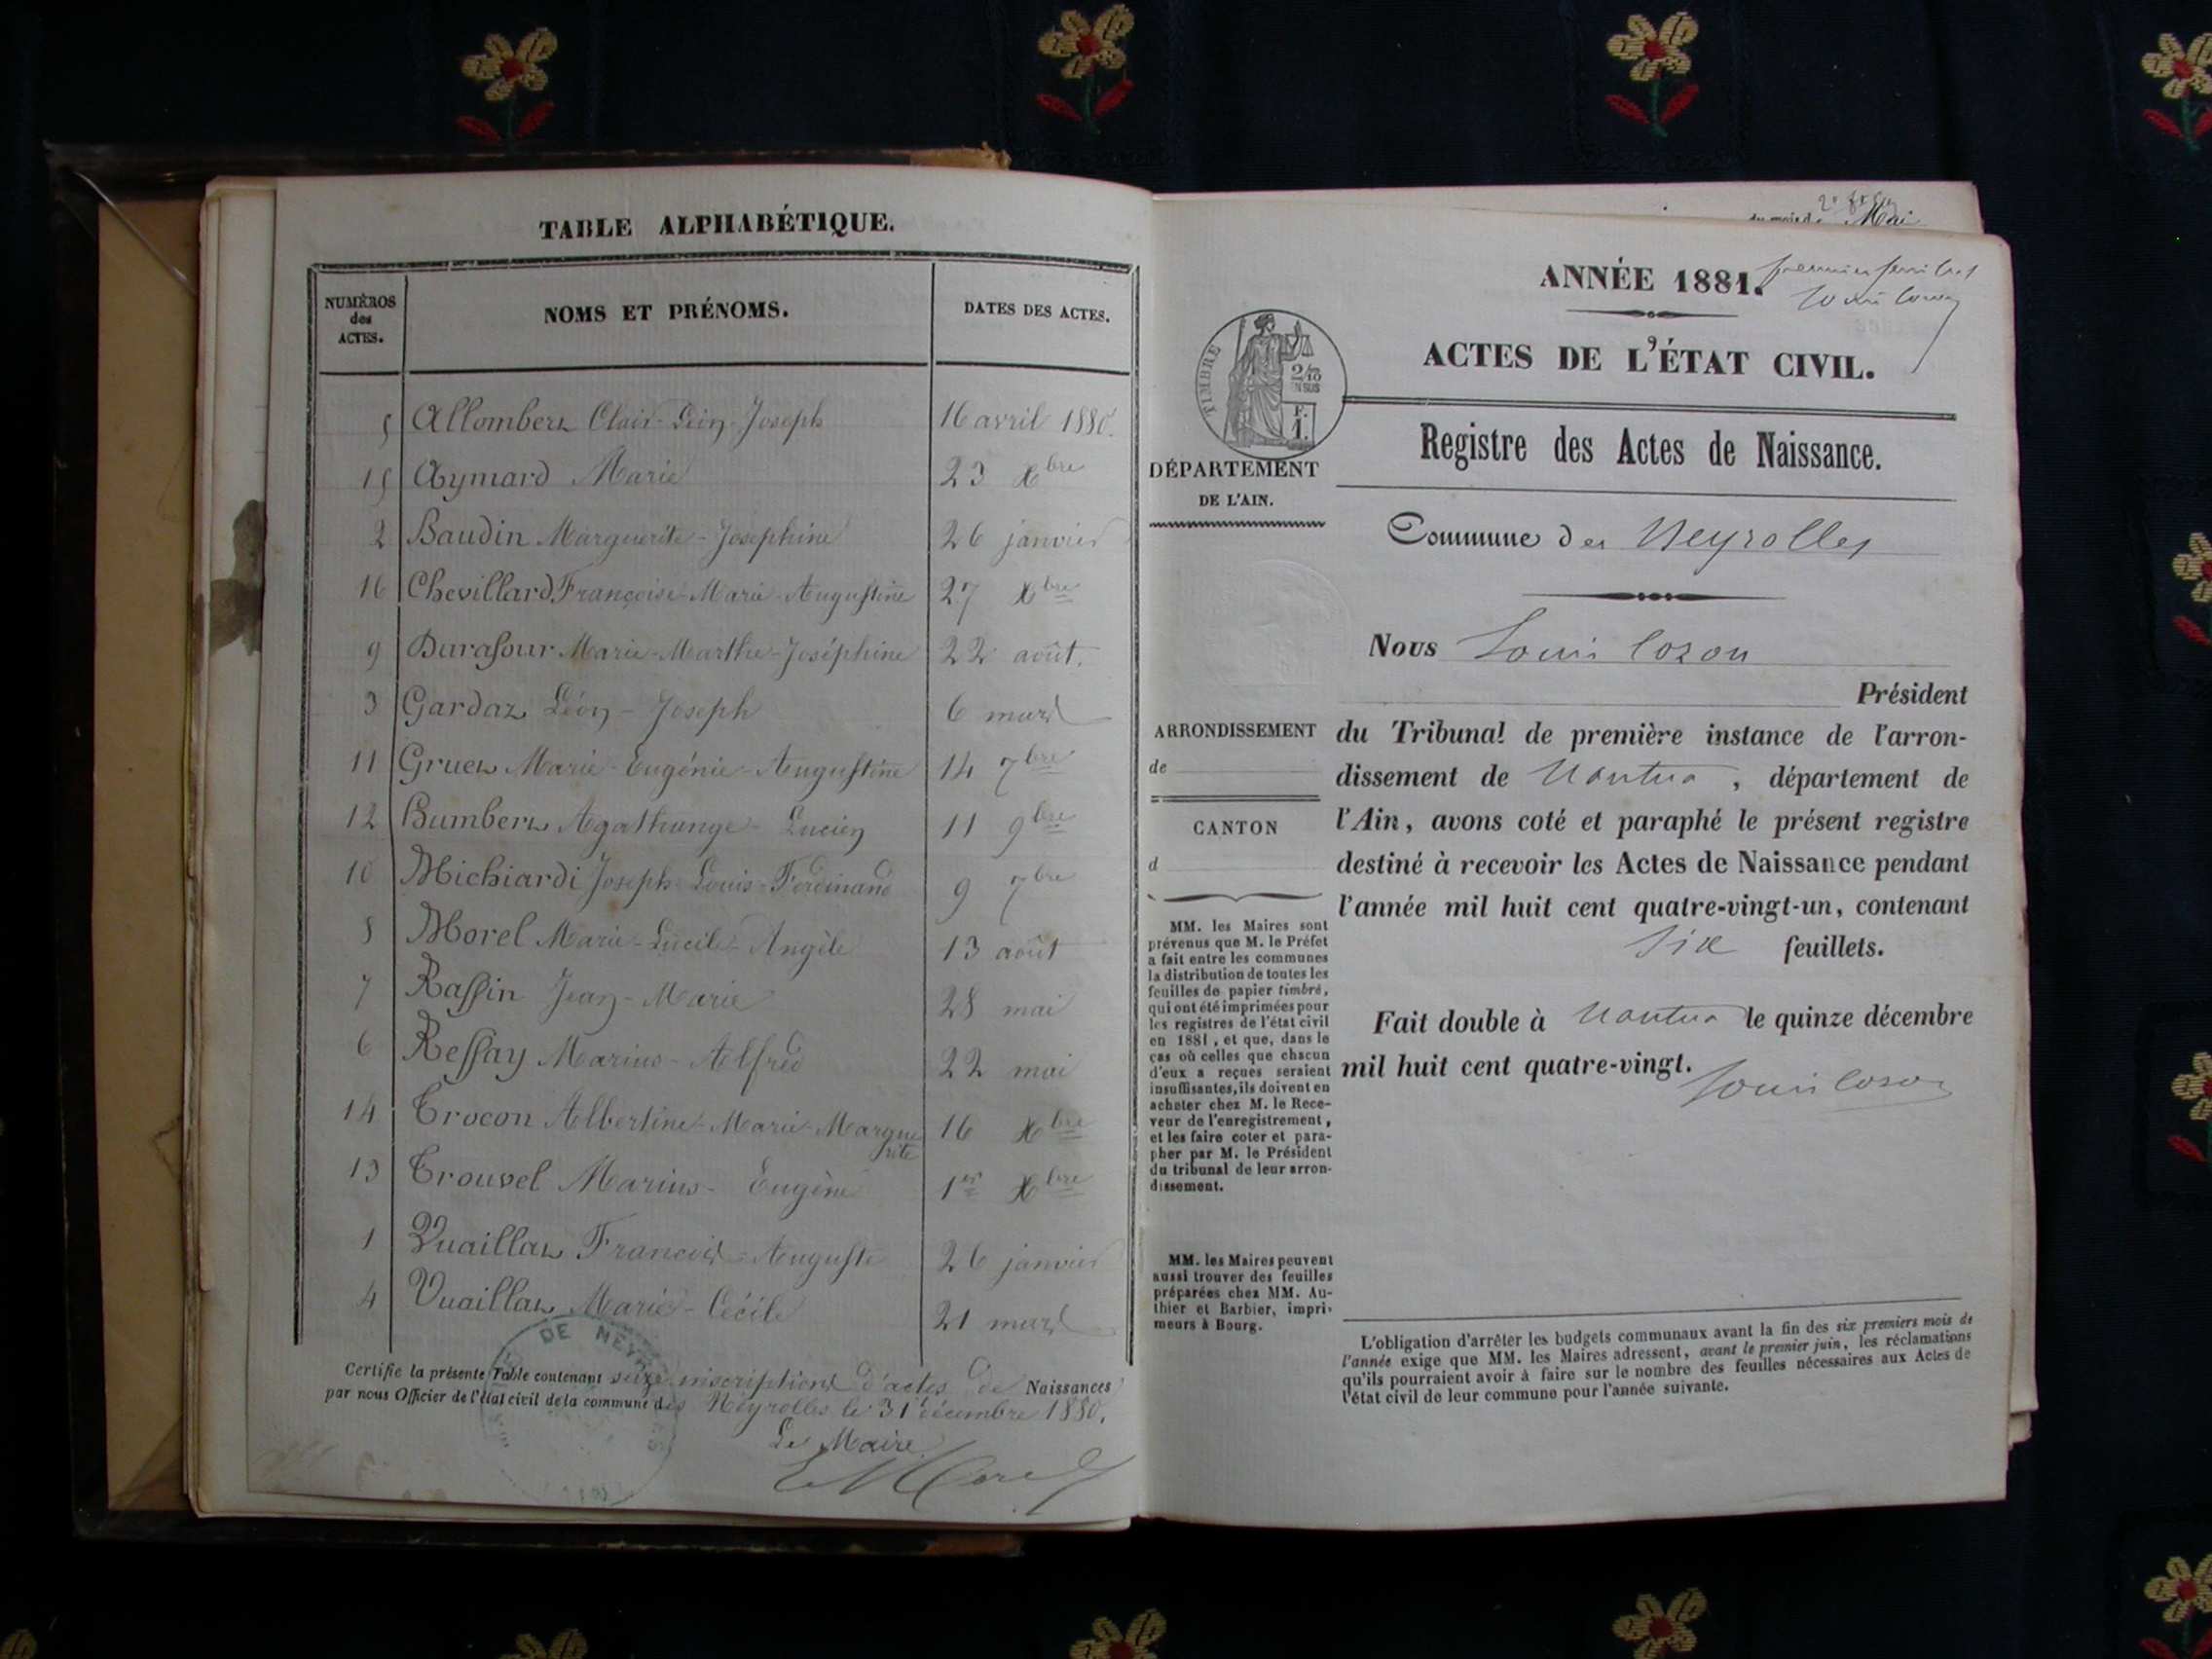 TABLE ALPHABÉTIQUE.
NUMÉROS des ACTES. NOMS ET PRÉNOMS. DATES DES ACTES.
5 Allombert Clair-Léon-Joseph 16 avril 1880.
15 Aymard Marie 23 Xbre
2 Baudin Marguerite-Joséphine 26 janvier
16 Chevillard Françoise-Marie-Augustine 27 Xbre
9 Durafour Marie-Marthe-Joséphine 22 août.
3 Gardaz Léon-Joseph 6 mars
11 Gruet Marie-Eugénie-Augustine 14 7bre
12 Humbert Agathange-Lucien 11 9bre
10 Michiardi Joseph-Louis-Ferdinand 9 7bre
8 Morel Marie-Lucile-Angèle 13 août
7 Rassin Jean-Marie 28 mai
6 Ressay Marius-Alfred 22 mai
14 Trocon Albertine-Marie-Marguerite 16 Xbre
13 Trouvel Marius-Eugène 1er Xbre
1 Vuaillat François-Auguste 26 janvier
4 Vuaillat Marie-Cécile 21 mars
Certifie la présente Table contenant seize inscriptions d'actes de Naissances
par nous Officier de l'état civil de la commune des Neyrolles le 31 décembre 1880.
Le Maire
DE NEYR
du mois de Mai
ANNÉE 1881.
premier feuillet
Louis Cozon
ACTES DE L'ÉTAT CIVIL.
Registre des Actes de Naissance.
TIMBRE
2/10
EN SUS
F.
1.
DÉPARTEMENT
DE L'AIN.
Commune des Neyrolles
Nous Louis Cozon
Président
du Tribunal de première instance de l'arron-
dissement de Nantua, département de
l'Ain, avons coté et paraphé le présent registre
destiné à recevoir les Actes de Naissance pendant
l'année mil huit cent quatre-vingt-un, contenant
six feuillets.
Fait double à Nantua le quinze décembre
mil huit cent quatre-vingt.
Louis Cozon
ARRONDISSEMENT
de
CANTON
d
MM. les Maires sont
prévenus que M. le Préfet
a fait entre les communes
la distribution de toutes les
feuilles de papier timbré,
qui ont été imprimées pour
les registres de l'état civil
en 1881, et que, dans le
cas où celles que chacun
d'eux a reçues seraient
insuffisantes, ils doivent en
acheter chez M. le Rece-
veur de l'enregistrement,
et les faire coter et para-
pher par M. le Président
du tribunal de leur arron-
dissement.
MM. les Maires peuvent
aussi trouver des feuilles
préparées chez MM. Au-
thier et Barbier, impri-
meurs à Bourg.
L'obligation d'arrêter les budgets communaux avant la fin des six premiers mois de
l'année exige que MM. les Maires adressent, avant le premier juin, les réclamations
qu'ils pourraient avoir à faire sur le nombre des feuilles nécessaires aux Actes de
l'état civil de leur commune pour l'année suivante.